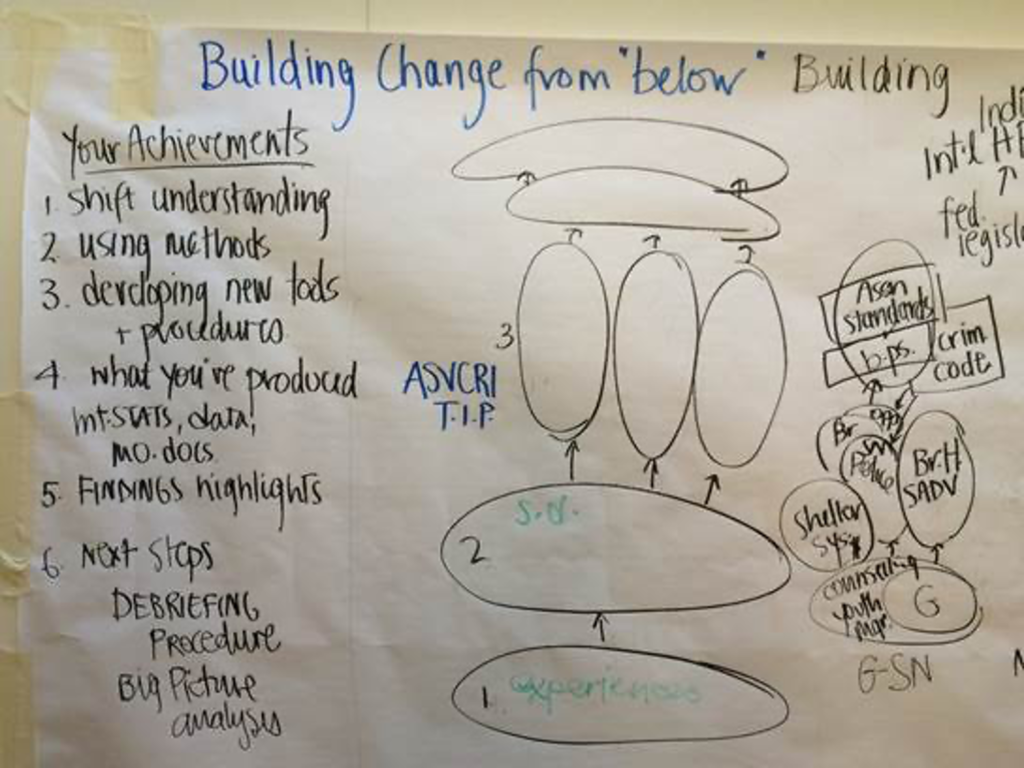 Building Change from "below" Building
Your Achievements
1. shift understanding
2. using methods
3. developing new tools
+ procedures
4. what you've produced
Int.STATS, data,
mo.docs
5. FINDINGS highlights
6. Next Steps
DEBRIEFING
Procedure
Big Picture
analysis
3
ASVCRI
T.I.P.
2
1. experiences
Indi
Int'l
fed.
legisl
Assn
standards
b.ps.
crim
code
Br
Police
Br.H
SADV
Shelter
sys.
counseling
youth
mgr.
G
G-SN